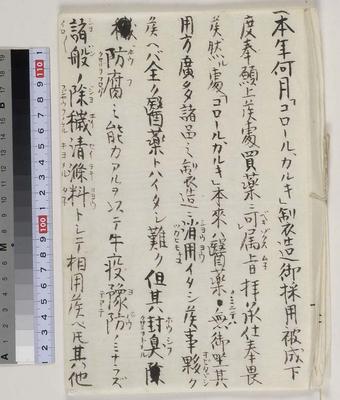 本年何月「コロール、カルキ」製造御採用被成下
度奉願上候處買薬ニ可属旨拝承仕奉畏
候然ル處「コロールカルキ」本来ハ醫薬ノミニテハ無御坐其
用方廣ク多諸品ニ製造ニ消用イタシ候事夥ク
候ヘバ全ク醫薬トハイタシ難ク但其ハ封臭
防腐ニ能力アルヲ以テ牛疫豫防ノミナラズ
諸般ノ除穢清滌料トシテ相用候ヘ氏其他